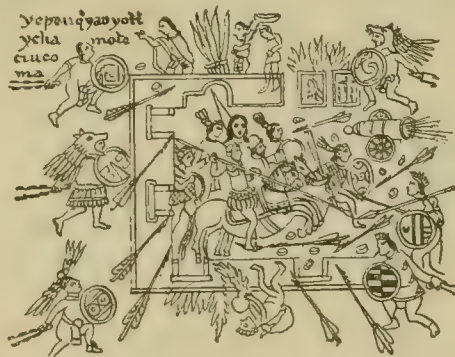 yepeuhq̃yaoyotl
ycha mote
cuico
ma